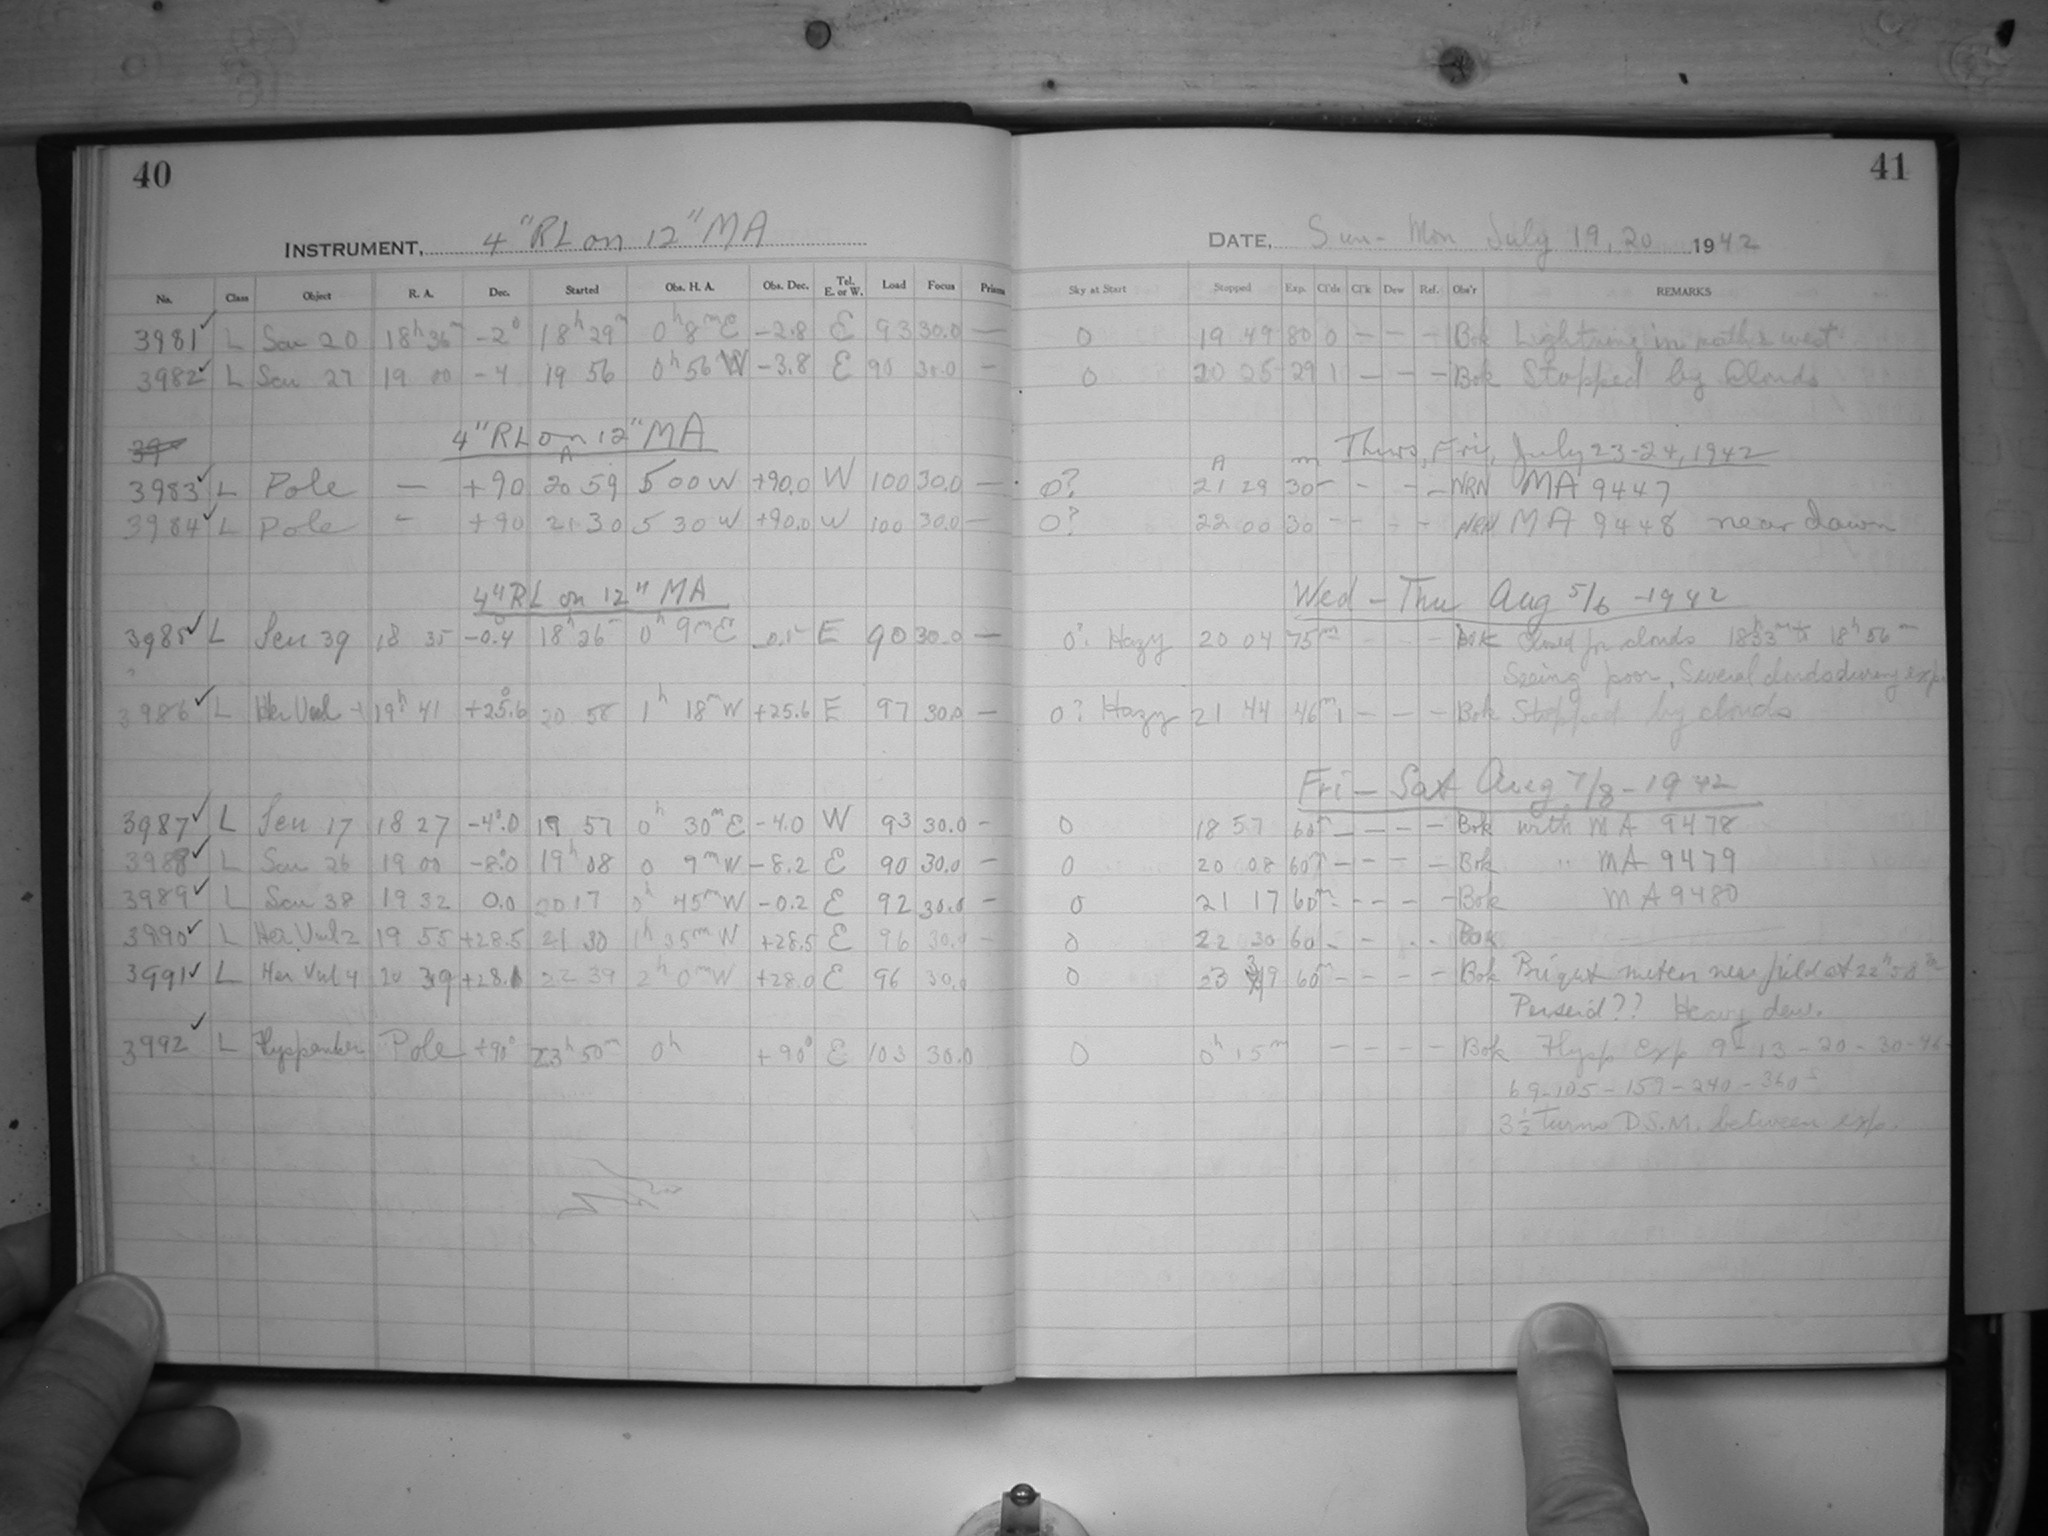 40
INSTRUMENT, 4" RL on 12" MA
No. Class Object R. A. Dec. Started Obs. H. A. Obs. Dec. Tel. E. or W. Load Focus Prism
3981 ✓ L Scu 20 18h 36m -2° 18h 29m 0h 8m E -2.8 E 93 30.0 —
3982 ✓ L Scu 27 19 00 -4 19 56 0h 56 W -3.8 E 90 30.0 —
39
4" RL on 12" MA
3983 ✓ L Pole — +90 20h 59 5 00 W +90.0 W 100 30.0 —
3984 ✓ L Pole - +90 21 30 5 30 W +90.0 W 100 30.0 —
4" RL on 12" MA
3985 ✓ L Scu 39 18 35 -0.4 18h 26 0h 9m E E 90 30.0 —
3986 ✓ L Her Vul 1 19h 41 +25.6 20 58 1h 18m W +25.6 E 97 30.0 —
3987 ✓ L Scu 17 18 27 -4°.0 19 57 0h 30m E -4.0 W 93 30.0 -
3988 ✓ L Scu 26 19 00 -8°.0 19h 08 0 9m W -8.2 E 90 30.0 —
3989 ✓ L Scu 38 19 32 0.0 20 17 0h 45m W -0.2 E 92 30.0 -
3990 ✓ L Her Vul 2 19 55 +28.5 21 30 1h 35m W +28.5 E 96 30.0 -
3991 ✓ L Her Vul 4 20 39 +28.1 22 39 2h 0m W +28.0 E 96 30.0
3992 ✓ L Pole +90° 23h 50m 0h +90° E 103 30.0
41
DATE, Sun - Mon July 19, 20 1942
Sky at Start Stopped Exp. Cl'ds Cl'k Dew Ref. Obs'r REMARKS
0 19 49 80 0 — — — Bok Lightning in north & west
0 20 25 29 1 — — — Bok Stopped by Clouds
Thurs, Fri, July 23-24, 1942
0? 21h 29 30m - - - - NRN MA 9447
0? 22 00 30 - - - - NRN MA 9448 near dawn
Wed - Thu Aug 5/6 - 1942
0? Hazy 20 04 75m - - - Bok Closed for clouds 18h 33m to 18h 56m
Seeing poor, Several clouds during exp.
0? Hazy 21 44 46m 1 — — — Bok Stopped by clouds
Fri - Sat Aug 7/8 - 1942
0 18 57 60m — — — — Bok with MA 9478
0 20 08 60m — — — — Bok " MA 9479
0 21 17 60m — — — — Bok MA 9480
0 22 30 60 - - - - Bok
0 23 39 60m — — — — Bok Bright meteor near field at 22h 58m
Perseid?? Heavy dew.
0 0h 15m — — — — Bok Flysp Exp 9 - 13 - 20 - 30 - 46 -
69 - 105 - 159 - 240 - 360s
3½ turns D.S.M. between exp.